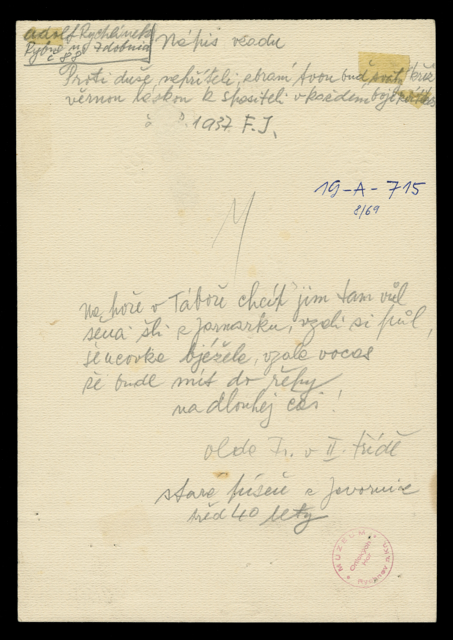 Adolf Rychlánek
Rybná n. Zdobnicí
č 83
Nápis vzadu
Proti duše nepříteli, zbraní tvou buď svatý kříž
věrnou láskou k spasiteli v každém boji
1937 F.J.
19-A-715
8/69
Na hoře v Táboře chcíp jim tam vůl
sena šli z jarmarku, vzali si půl,
ševcovka bježela, vzala vocas
že bude mít do řehy
na dlouhej čas!
Olda Fr. v II. třídě
stará píseň z Javornice
před 40 lety
MUZEUM